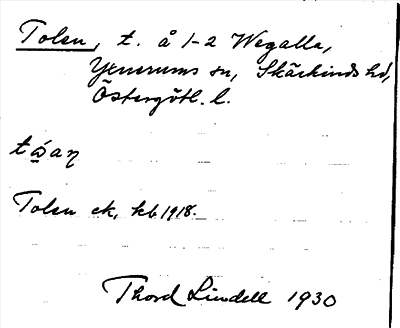 Tolen, t. å 1-2 Wegalla,
Yxnerums sn, Skärkinds hd,
Östergötl. l.
Tolen ek, kb 1918.
Thord Lindell 1930